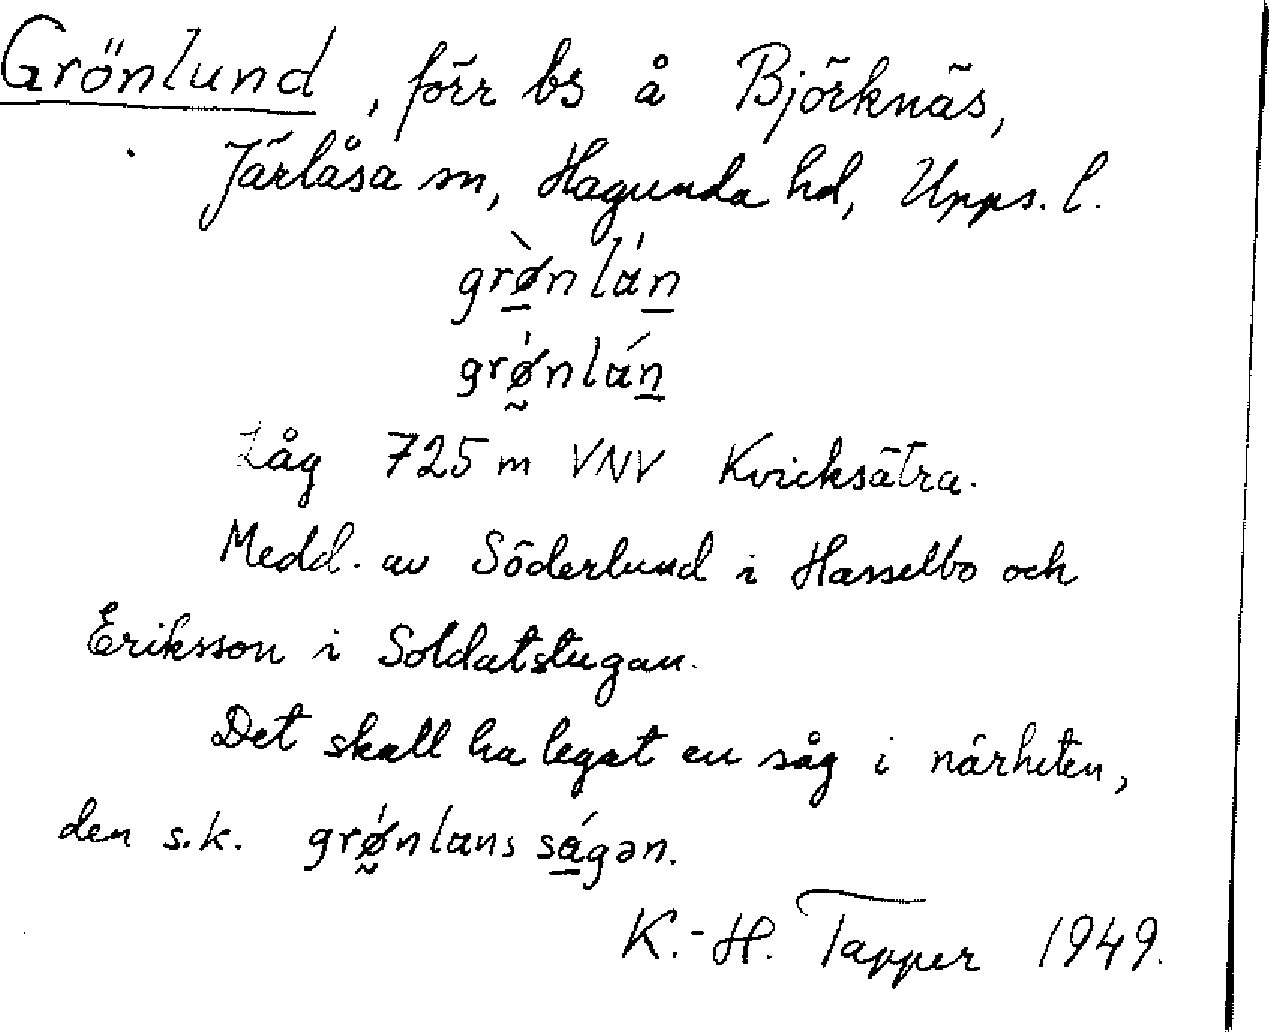 Grönlund, förr bs å Björknäs,
Järlåsa sn, Hagunda hd, Upps. l.
grø̠̀nlán̠
grǿ̰nlán̠
Låg 725 m VNV Kvicksätra.
Medd. av Söderlund i Hasselbo och
Eriksson i Soldatstugan.
Det skall ha legat en såg i närheten,
den s.k. grǿ̰nlans sá̠gən.
K.-H. Tapper 1949.